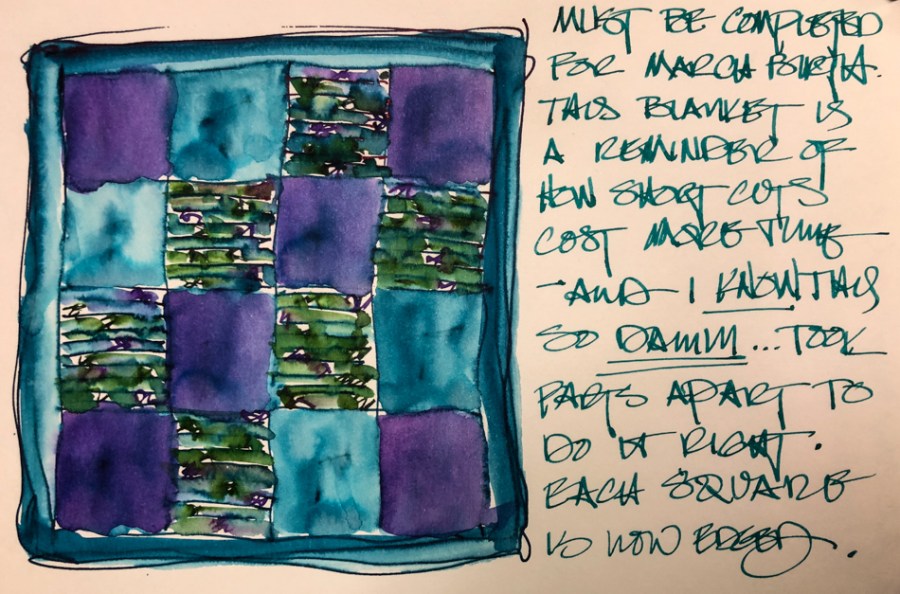 MUST BE COMPLETED
FOR MARCH BIRTH.
THIS BLANKET IS
A REMINDER OF
HOW SHORT CUTS
COST MORE TIME
- AND I KNOW THIS
SO DAMM ... TOOK
PARTS APART TO
DO IT RIGHT.
EACH SQUARE
IS NOW EDGED.